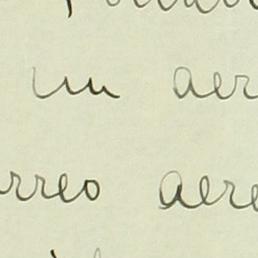 un aer
rreo aere